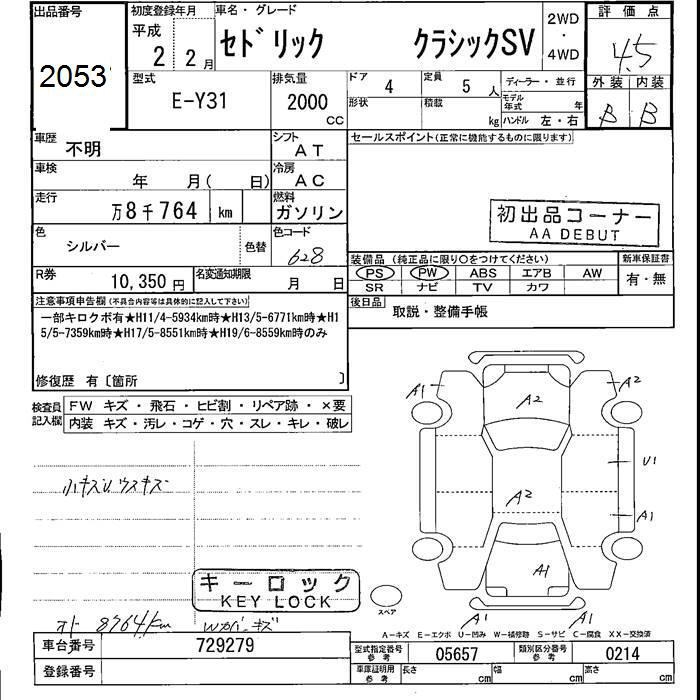 出品番号
2053
初度登録年月
平成
2 2月
車名・グレード
セドリック クラシックSV
2WD
・
4WD
評価点
4.5
外装 内装
B B
型式
E-Y31
排気量
2000
cc
ドア
4
定員
5人
形状
積載
kg
ディーラー・並行
モデル年式 年
ハンドル 左・右
車歴
不明
シフト
AT
セールスポイント(正常に機能するものに限ります)
車検
年 月( 日)
冷房
AC
走行
万8千764 km
燃料
ガソリン
初出品コーナー
AA DEBUT
色
シルバー
色替
色コード
628
装備品 (純正品に限り○をつけてください)
PS PW ABS エアB AW
SR ナビ TV カワ
新車保証書
有・無
R券
10,350円
名変通知期限
月 日
後日品
取説・整備手帳
注意事項申告欄(不具合内容等は具体的に記入して下さい)
一部キロクボ有★H11/4-5934km時★H13/5-6771km時★H1
5/5-7359km時★H17/5-8551km時★H19/6-8559km時のみ
修復歴 有〔箇所 〕
検査員記入欄
FW キズ・飛石・ヒビ割・リペア跡・×要
内装 キズ・汚レ・コゲ・穴・スレ・キレ・破レ
小キズU ウスキズ
キーロック
KEY LOCK
オド 8764km
Wカバーキズ
A1
A2
A2
A2
U1
A1
A1
A1
A1
スペア
A-キズ E-エクボ U-凹み W-補修跡 S-サビ C-腐食 XX-交換済
車台番号
729279
登録番号
型式指定番号
参考
05657
類別区分番号
参考
0214
車庫証明用
参考
長さ cm
幅 cm
高さ cm